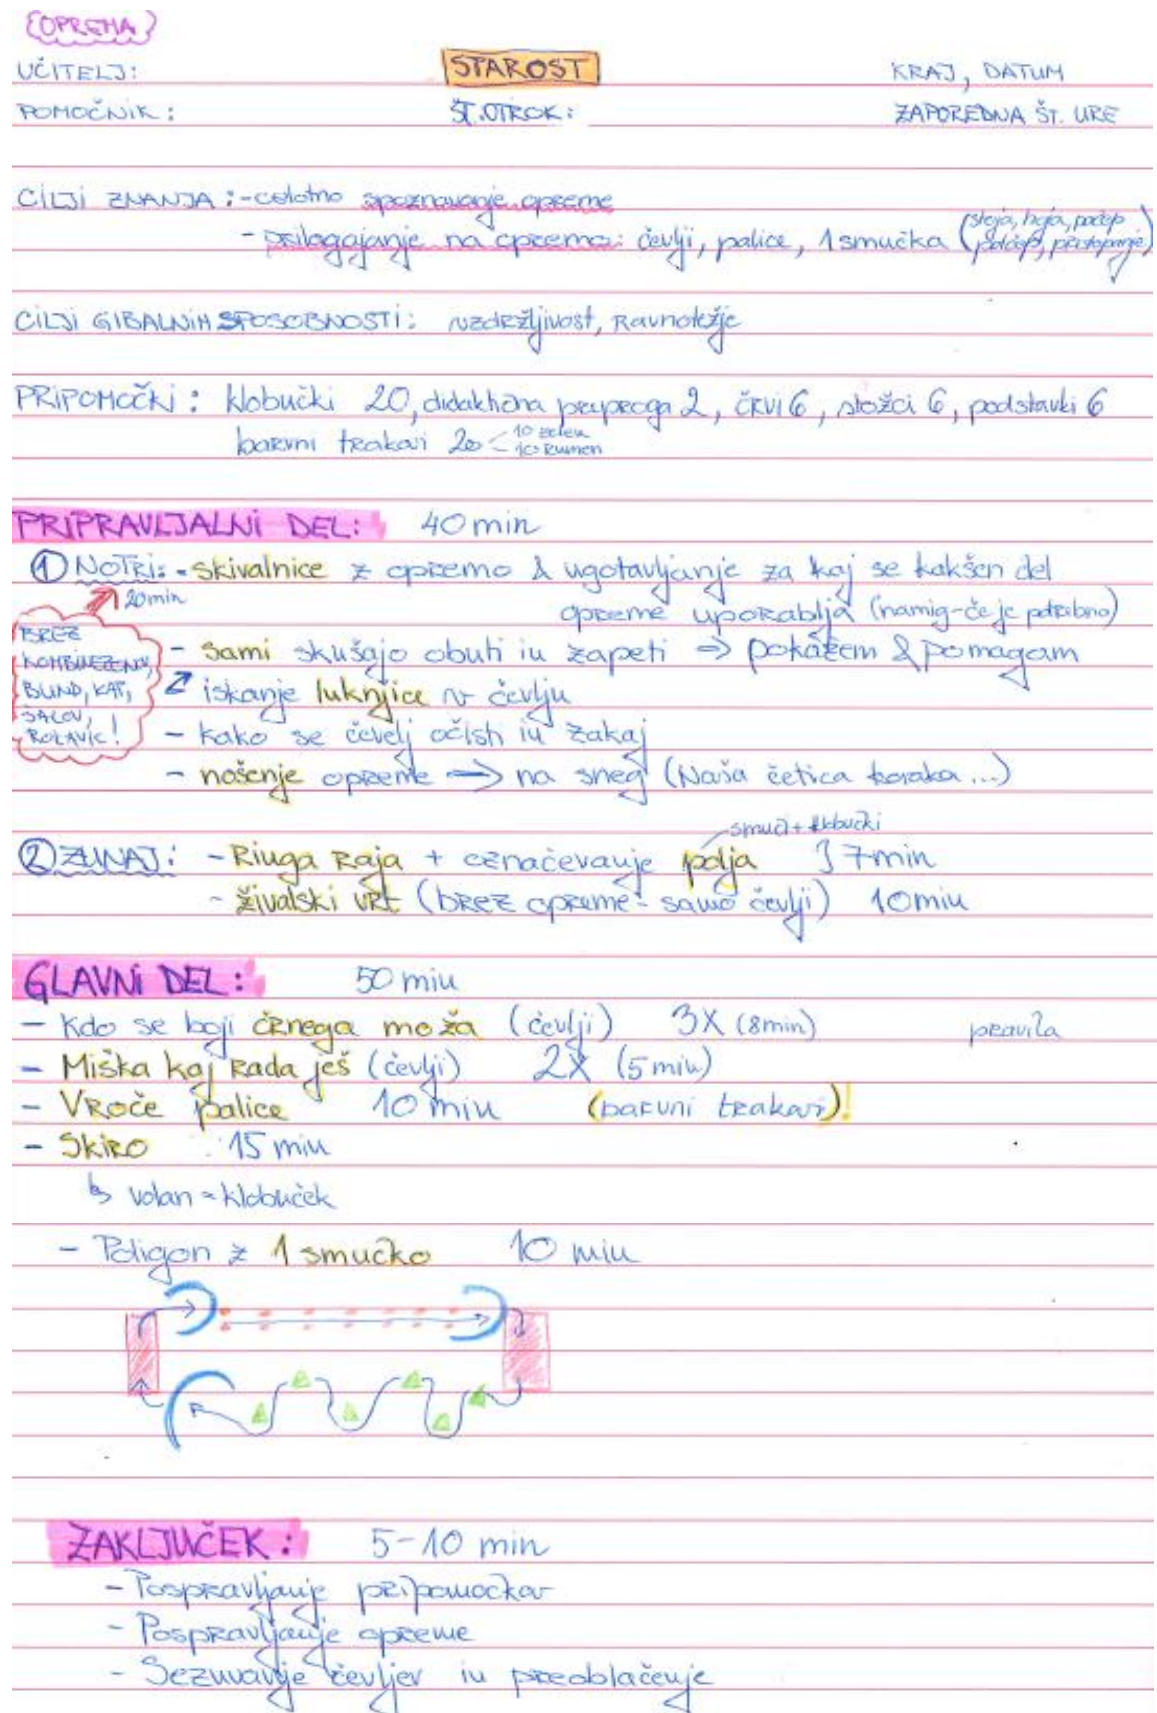 OPREMA
UČITELJ: STAROST KRAJ, DATUM
POMOČNIK: ŠT. OTROK: ZAPOREDNA ŠT. URE
CILJI ZNANJA: - celotno spoznavanje opreme
- prilagajanje na opremo: čevlji, palice, 1 smučka (stoja, hoja, počep
polčep, prestopanje)
CILJI GIBALNIH SPOSOBNOSTI: vzdržljivost, Ravnotežje
PRIPOMOČKI: klobučki 20, didaktična preproga 2, črvi 6, stožci 6, podstavki 6
barvni trakovi 20 < 10 zelen
10 Rumen
PRIPRAVLJALNI DEL: 40 min
① NOTRI: - skivalnice z opremo & ugotavljanje za kaj se kakšen del
20 min
opreme uporablja (namig - če je potrebno)
BREZ
KOMBINEZONV,
BUND, KAP,
ŠALOV,
ROKAVIC!
- sami skušajo obuti in zapeti ⇒ pokažem & pomagam
iskanje luknjice v čevlju
- kako se čevelj očisti in zakaj
- nošenje opreme ⇒ na sneg (Naša četica koraka...)
smuči + klobučki
② ZUNAJ: - Ringa Raja + označevanje polja } 7 min
- živalski vrt (brez opreme - samo čevlji) 10 min
GLAVNI DEL: 50 min
- Kdo se boji črnega moža (čevlji) 3X (8 min) pravila
- Miška kaj Rada ješ (čevlji) 2X (5 min)
- Vroče palice 10 min (barvni trakovi)!
- Skiro 15 min
↳ volan = klobuček
- Poligon z 1 smučko 10 min
ZAKLJUČEK: 5-10 min
- Pospravljanje pripomočkov
- Pospravljanje opreme
- Sezuvanje čevljev in preoblačenje